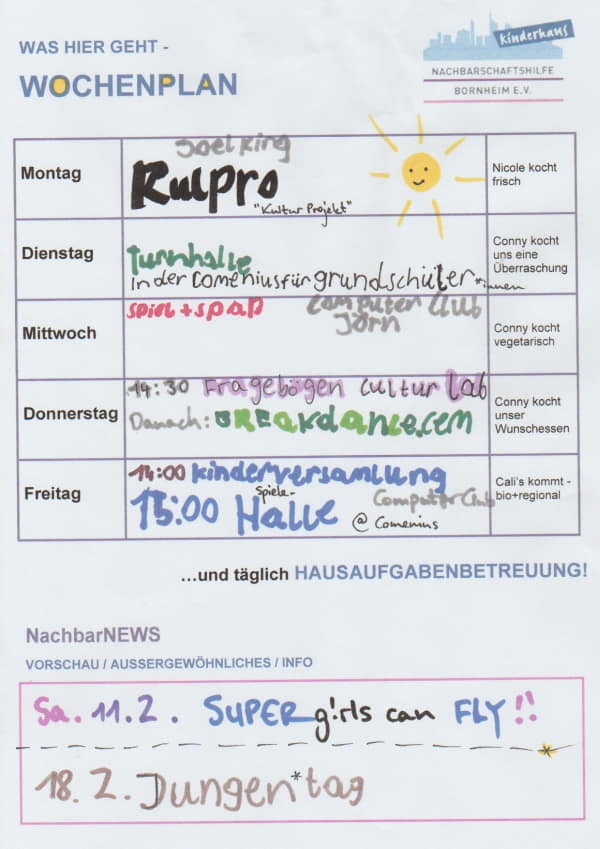 WAS HIER GEHT -
WOCHENPLAN
kinderhaus
NACHBARSCHAFTSHILFE
BORNHEIM E.V.
Montag
Joel King
Kulpro
"Kultur Projekt"
Nicole kocht
frisch
Dienstag
Turnhalle
in der Comenius für grundschüler*innen
Conny kocht
uns eine
Überraschung
Mittwoch
Spiel + Spaß
Computer Club
Jörn
Conny kocht
vegetarisch
Donnerstag
14:30 Fragebögen Cultur Lab
Danach: BREakdance.cem
Conny kocht
unser
Wunschessen
Freitag
14:00 Kinderversamlung
15:00 Spiele-Halle @ Comenius
Computer Club
Cali's kommt -
bio+regional
...und täglich HAUSAUFGABENBETREUUNG!
NachbarNEWS
VORSCHAU / AUSSERGEWÖHNLICHES / INFO
Sa. 11.2. SUPERg!rls can FLY!!
18.2. Jungen*tag